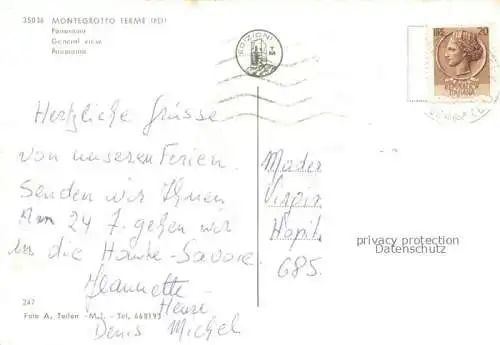 35036 MONTEGROTTO TERME (PD)
Panorama
General view
Panorama
EDIZIONI
LIRE 20
REPUBBLICA
ITALIANA
Herzliche Grüsse
von unseren Ferien.
Senden wir Ihnen
Am 24 7. gehen wir
in die Haute-Savoie
Jeannette -
Henri
Denis Michel
Mader
Hapit.
685.
privacy protection
Datenschutz
247
Foto A. Teilen - M.I. - Tel. 668193